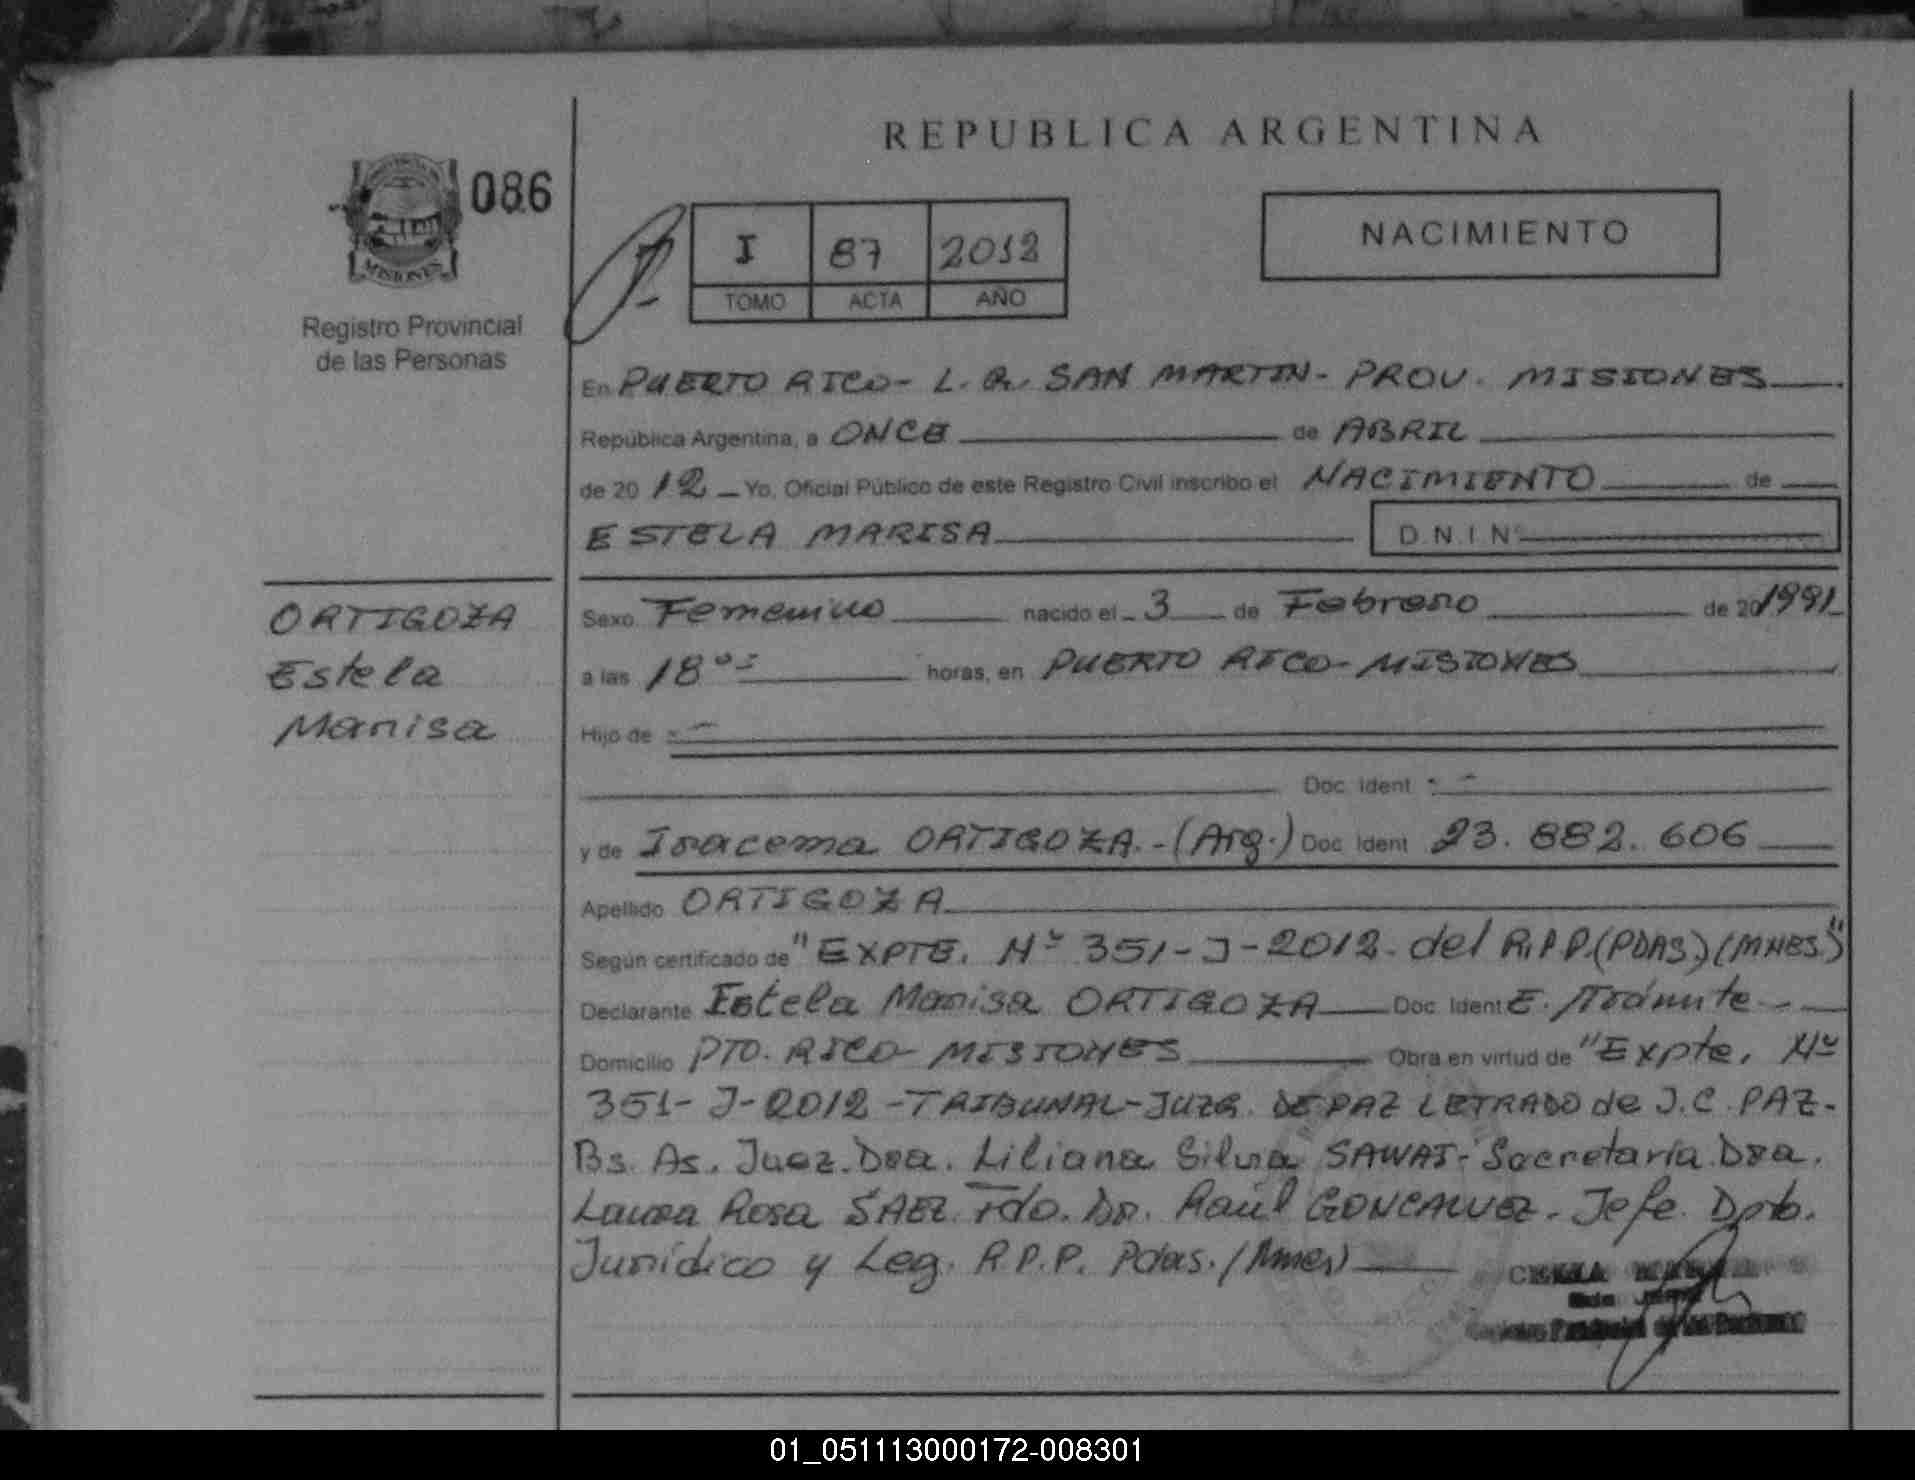 REPUBLICA ARGENTINA
086
MISIONES
Registro Provincial
de las Personas
I 87 2012
TOMO ACTA AÑO
NACIMIENTO
En PUERTO RICO- L. G. SAN MARTIN- PROV. MISIONES
República Argentina, a ONCE de ABRIL
de 20 12 Yo, Oficial Público de este Registro Civil inscribo el NACIMIENTO de
ESTELA MARISA D.N.I Nº
ORTIGOZA
Estela
Marisa
Sexo Femenino nacido el 3 de Febrero de 20 1991
a las 18 horas, en PUERTO RICO- MISIONES
Hijo de
Doc. Ident
y de Iracema ORTIGOZA.-(Arg.) Doc. Ident 23.882.606
Apellido ORTIGOZA
Según certificado de "EXPTE. Nº 351-J-2012- del R.P.P.(PDAS.)(MNES.)"
Declarante Estela Marisa ORTIGOZA Doc. Ident E. /Trámite
Domicilio PTO. RICO- MISIONES Obra en virtud de "Expte. Nº
351-J-2012-TRIBUNAL-JUZG. DE PAZ LETRADO de J.C. PAZ-
Bs. As. Juez.Dra. Liliana Silvia - Secretaria Dra.
Laura Rosa SAEZ. Fdo. Dr. Raúl GONCALVEZ. Jefe. Dpto.
Jurídico y Leg. R.P.P. Pdas. (Mnes)
01_051113000172-008301